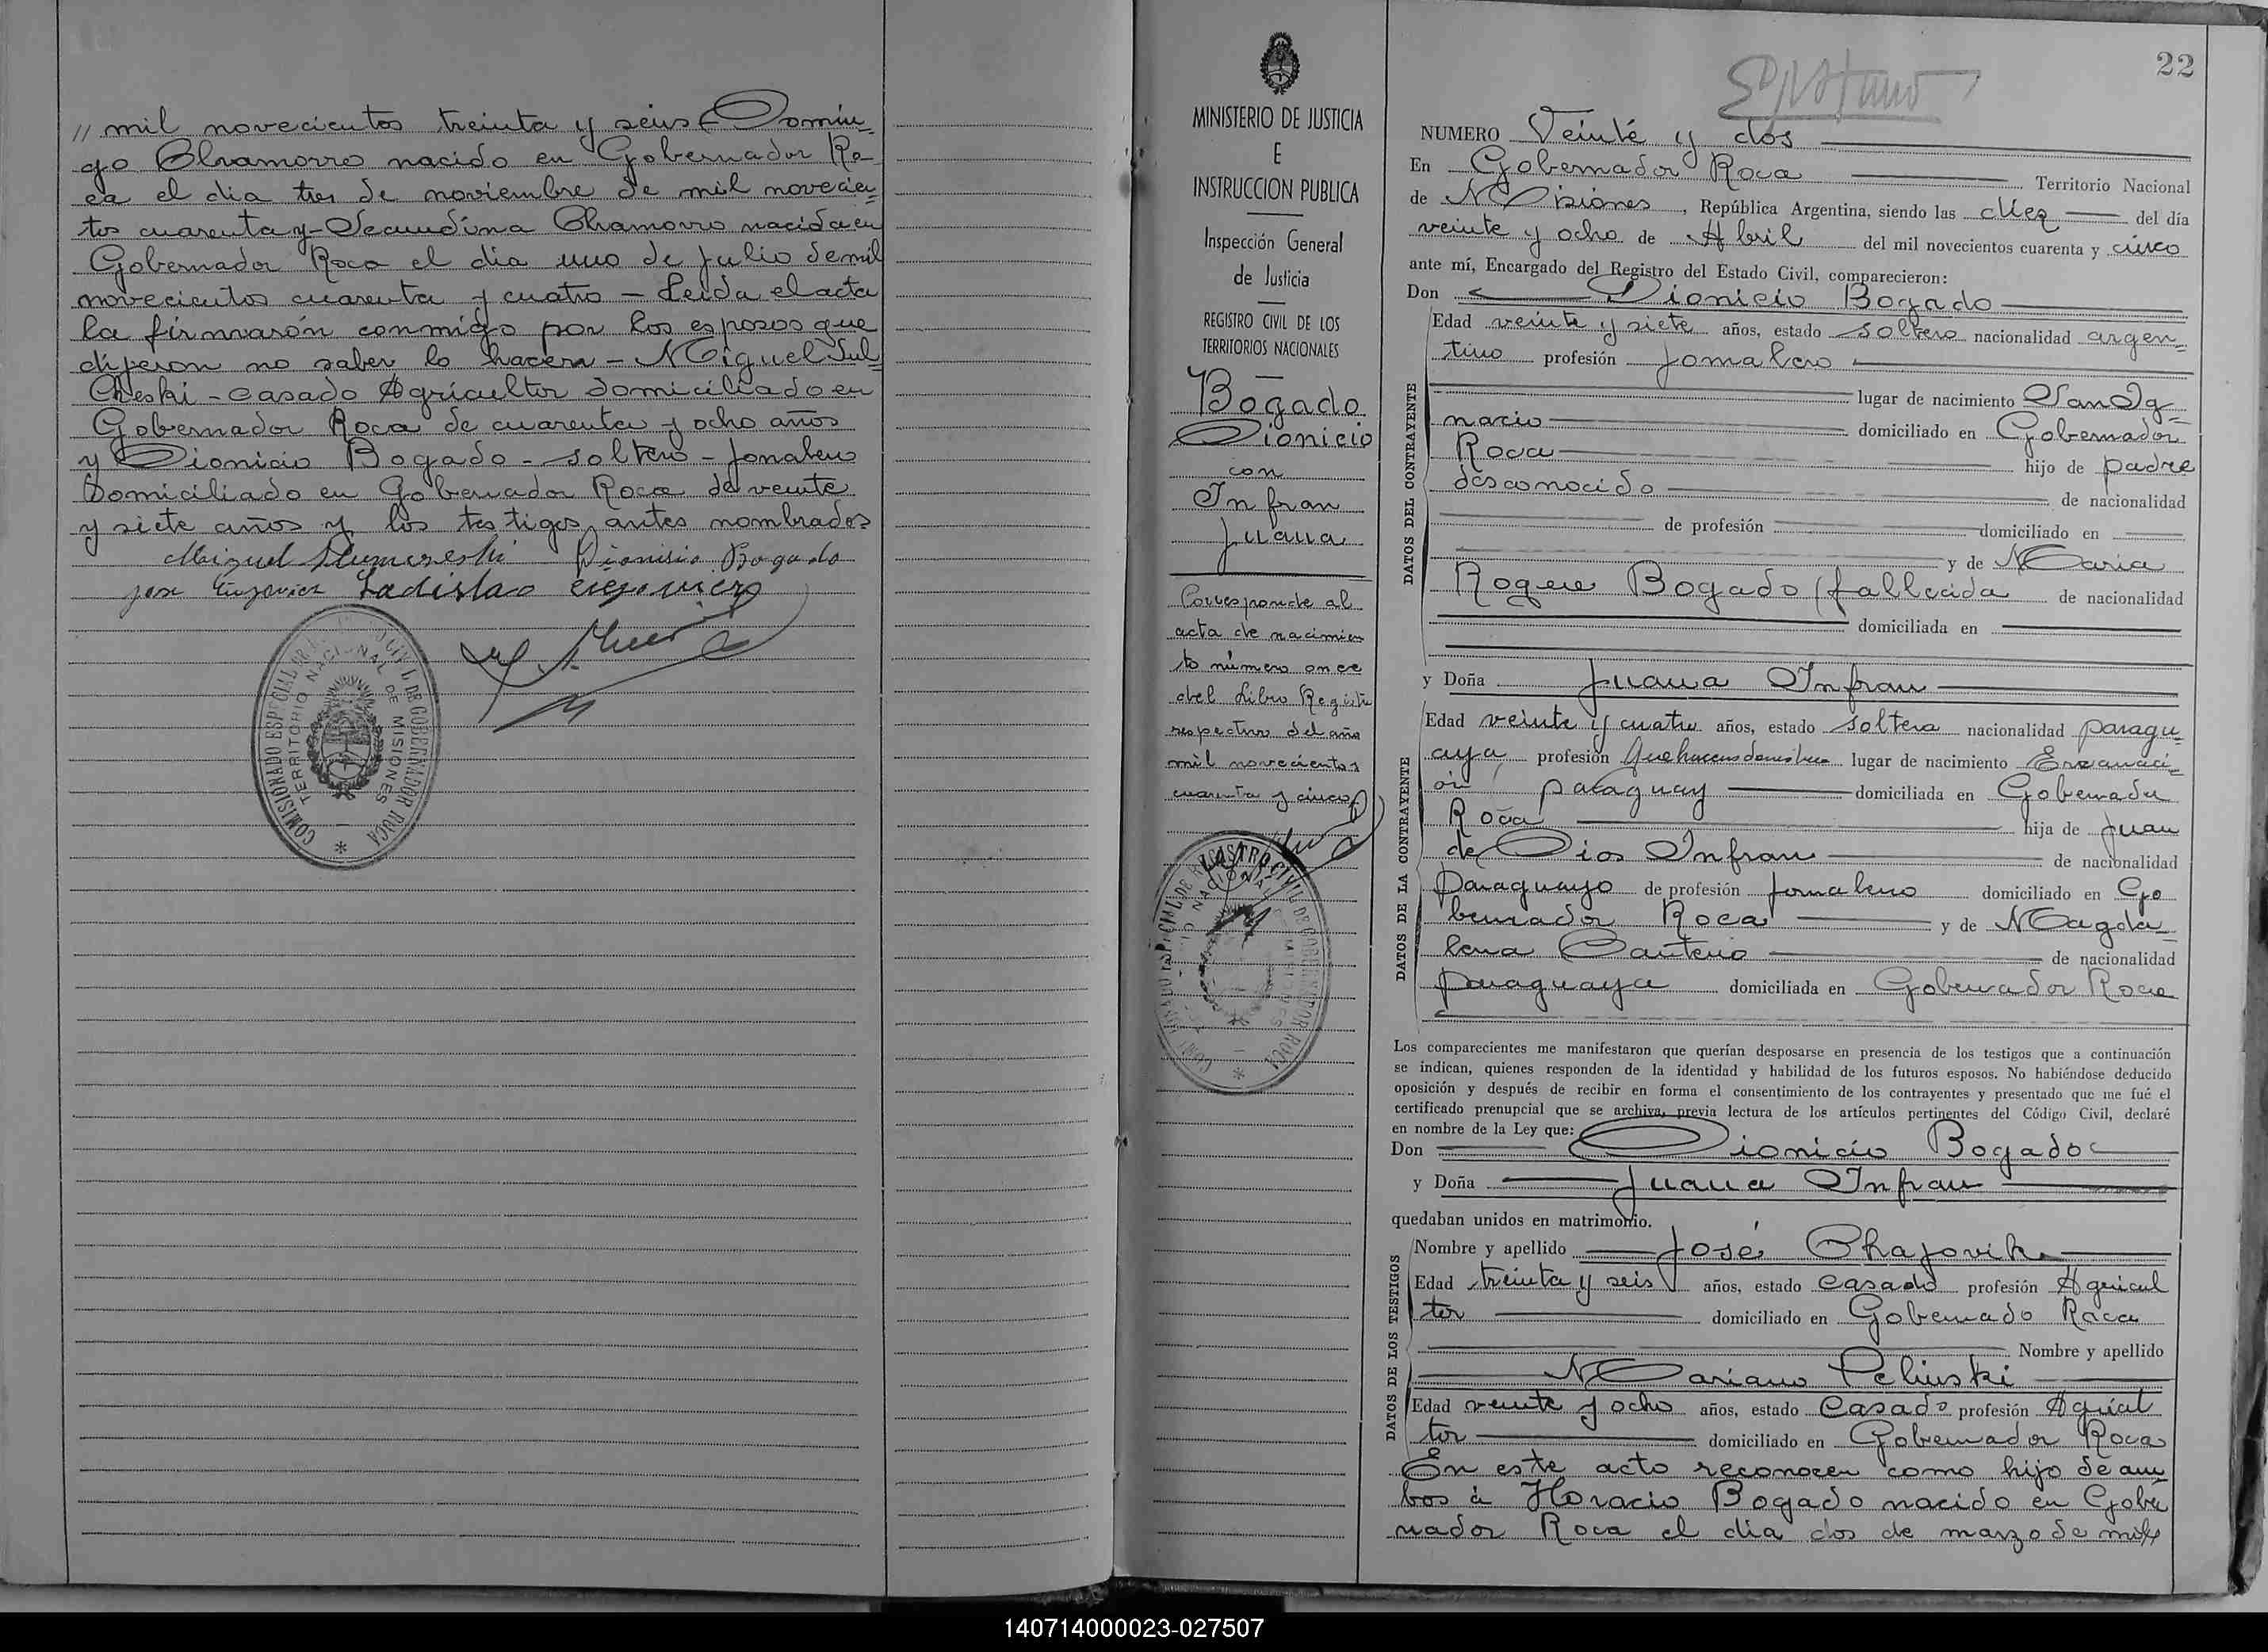 // mil novecientos treinta y seis - Domin-
go Chamorro nacido en Gobernador Ro-
ca el dia tres de noviembre de mil novecien-
tos cuarenta y - Secundina Chamorro nacida en
Gobernador Roca el dia uno de Julio de mil
novecientos cuarenta y cuatro - Leida el acta
la firmaron conmigo por los esposos que
dijeron no saber lo hacen - Miguel
- casado Agricultor domiciliado en
Gobernador Roca de cuarenta y ocho años
y Dionicio Bogado - soltero - Jornalero
Domiciliado en Gobernador Roca de veinte
y siete años y los testigos antes nombrados
Miguel Dionisio Bogado
Jose Ladislao
COMISIONADO ESPECIAL DE REGISTRO CIVIL DE GOBERNADOR ROCA
TERRITORIO NACIONAL DE MISIONES
MINISTERIO DE JUSTICIA
E
INSTRUCCION PUBLICA
Inspección General
de Justicia
REGISTRO CIVIL DE LOS
TERRITORIOS NACIONALES
Bogado
Dionicio
con
Infran
Juana
Corresponde al
acta de nacimien
to número once
del Libro Registro
respectivo del año
mil novecientos
cuarenta y cinco
22
NUMERO Veinte y dos
En Gobernador Roca Territorio Nacional
de Misiones, República Argentina, siendo las diez del día
veinte y ocho de Abril del mil novecientos cuarenta y cinco
ante mí, Encargado del Registro del Estado Civil, comparecieron:
Don Dionicio Bogado
DATOS DEL CONTRAYENTE
Edad veinte y siete años, estado soltero nacionalidad argen-
tino profesión Jornalero
lugar de nacimiento San Ig-
nacio domiciliado en Gobernador
Roca hijo de padre
desconocido de nacionalidad
de profesión domiciliado en
y de Maria
Bogado (fallecida de nacionalidad
domiciliada en
y Doña Juana Infran
DATOS DE LA CONTRAYENTE
Edad veinte y cuatro años, estado soltera nacionalidad paragu-
aya, profesión Quehaceres domesticos lugar de nacimiento Encarnaci-
ón paraguay domiciliada en Gobernador
Roca hija de Juan
de Dios Infran de nacionalidad
Paraguayo de profesión Jornalero domiciliado en Go
bernador Roca y de Magda-
lena Cantero de nacionalidad
paraguaya domiciliada en Gobernador Roca
Los comparecientes me manifestaron que querían desposarse en presencia de los testigos que a continuación
se indican, quienes responden de la identidad y habilidad de los futuros esposos. No habiéndose deducido
oposición y después de recibir en forma el consentimiento de los contrayentes y presentado que me fué el
certificado prenupcial que se archiva, previa lectura de los artículos pertinentes del Código Civil, declaré
en nombre de la Ley que:
Don Dionicio Bogado
y Doña Juana Infran
quedaban unidos en matrimonio.
DATOS DE LOS TESTIGOS
Nombre y apellido José Chajovik
Edad treinta y seis años, estado Casado profesión Agricul
tor domiciliado en Gobernado Roca
Nombre y apellido
Mariano Pelinski
Edad veinte y ocho años, estado Casado profesión Agricul
tor domiciliado en Gobernador Roca
En este acto reconocen como hijo de am
bos á Horacio Bogado nacido en Gober
nador Roca el dia dos de marzo de mil
140714000023-027507